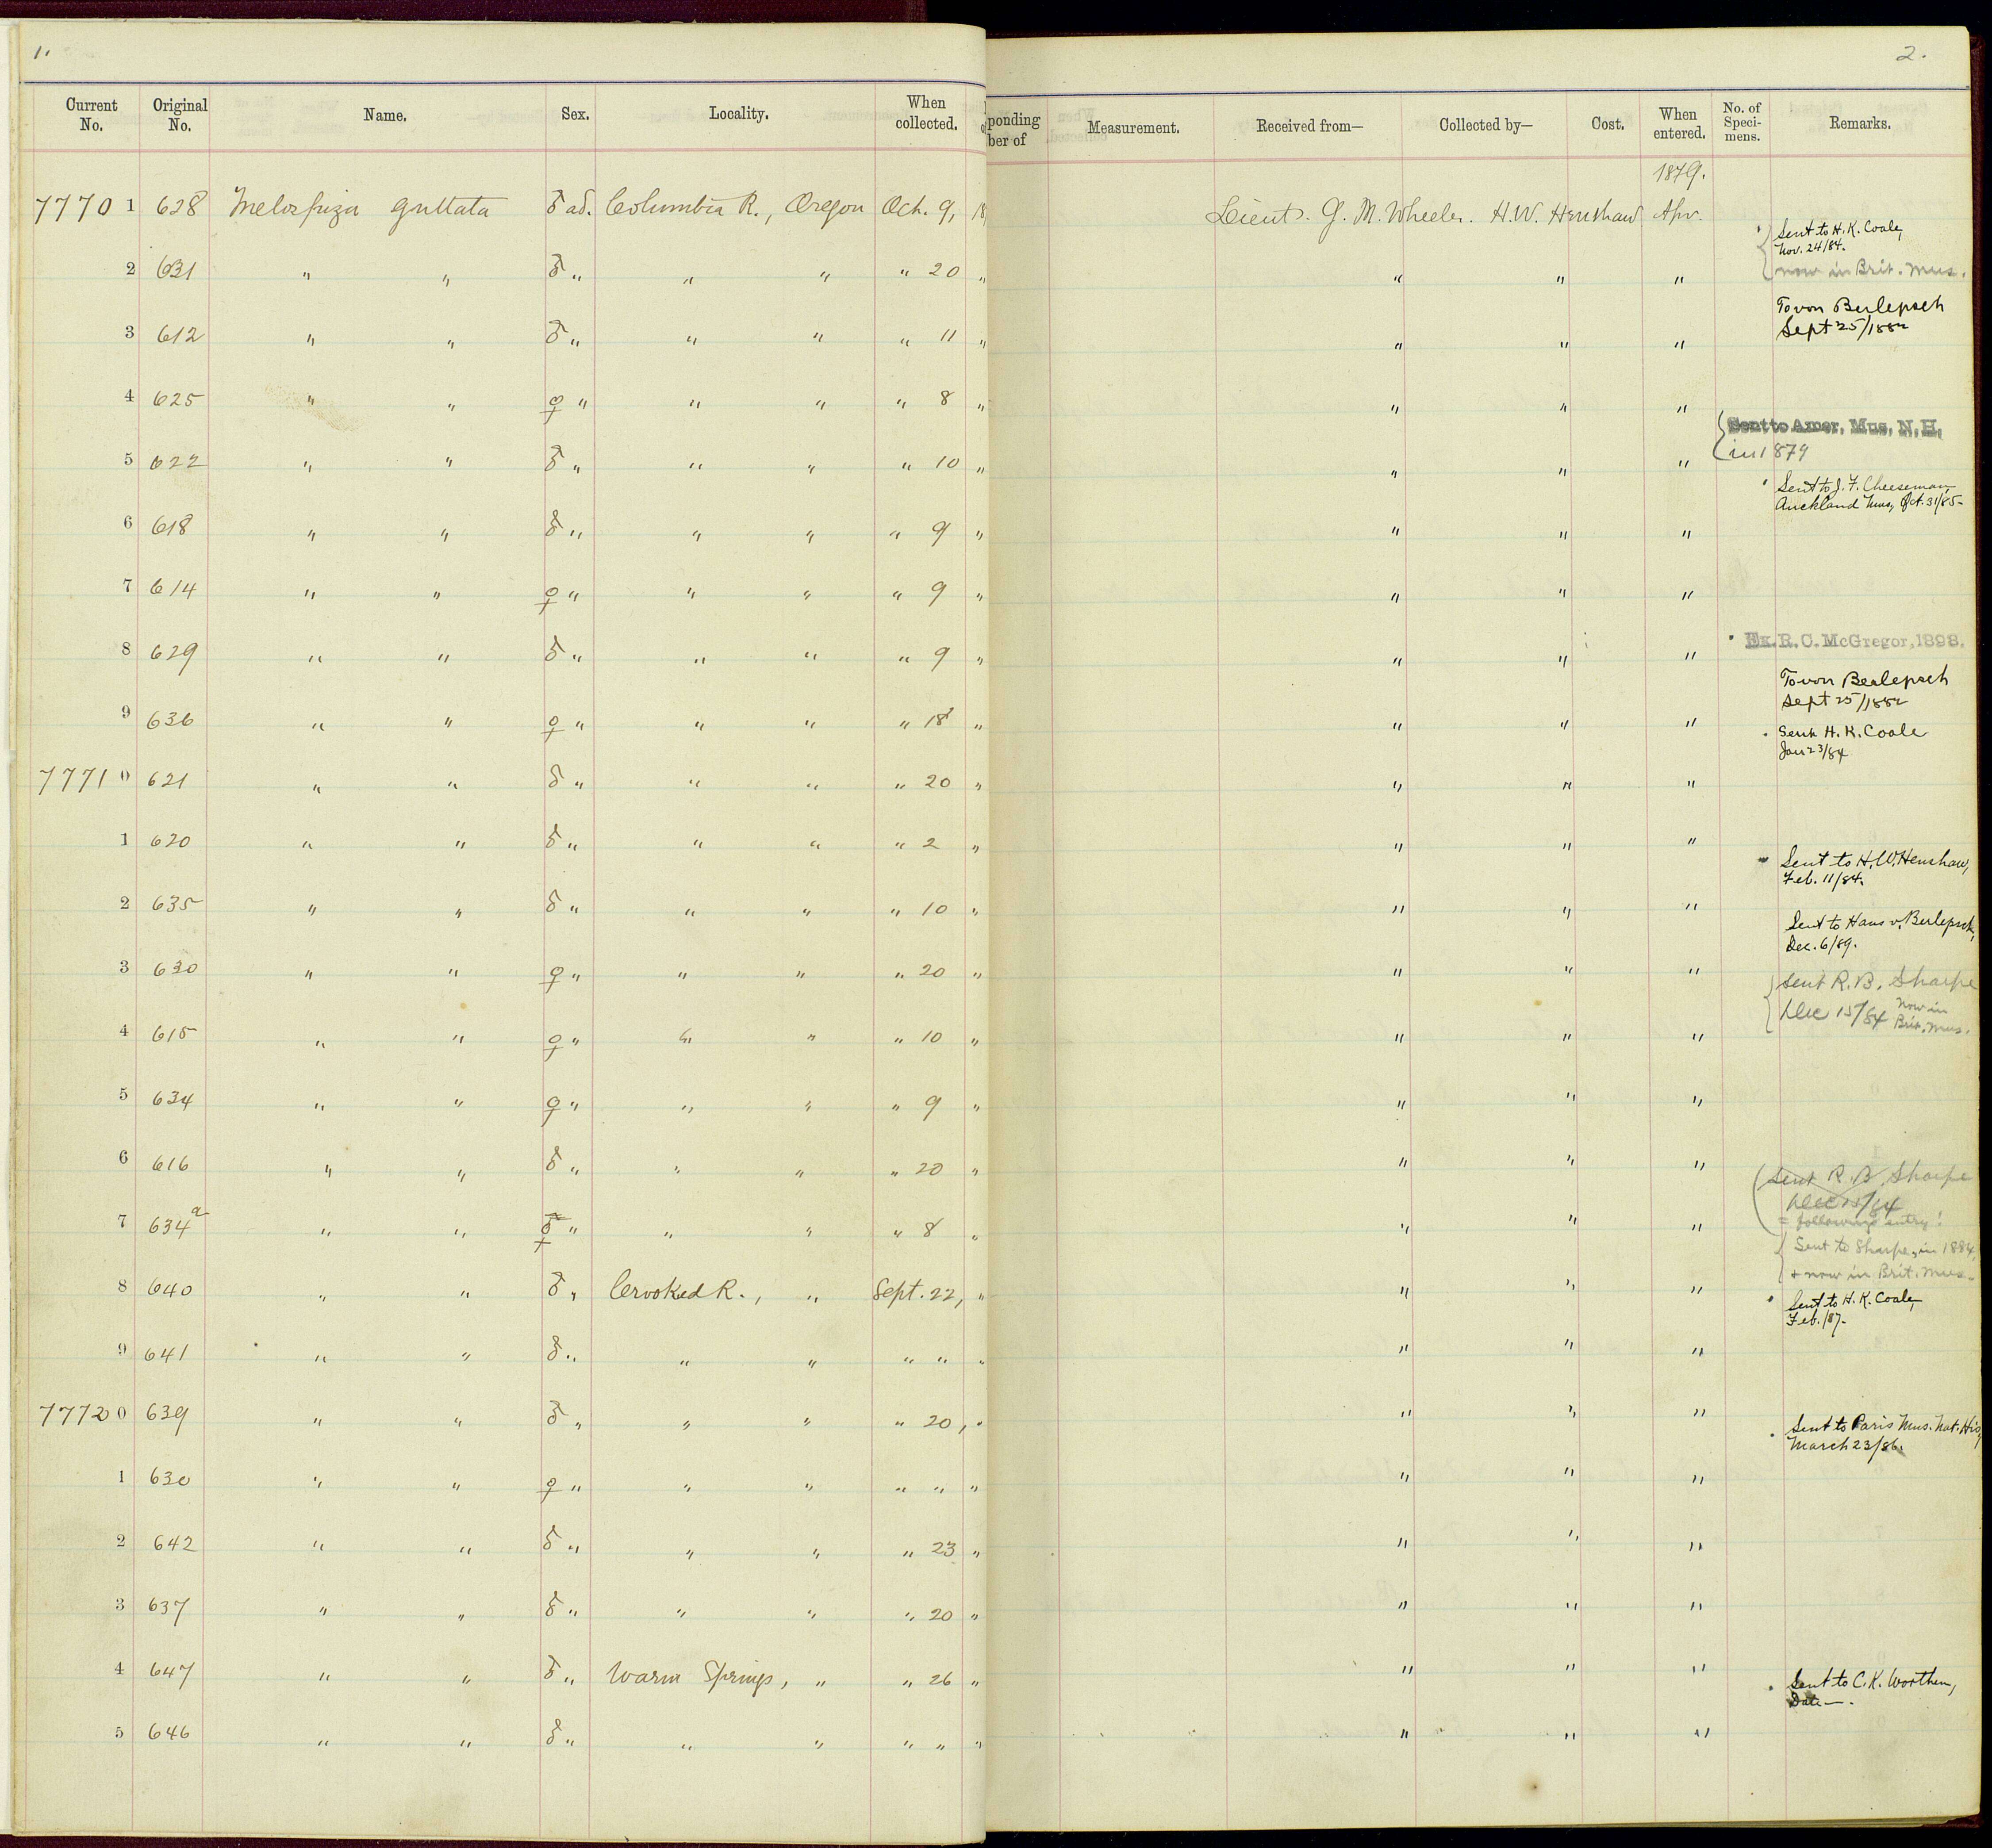 1.
2.
Current No. Original No. Name. Sex. Locality. When collected. ponding ber of Measurement. Received from— Collected by— Cost. When entered. No. of Speci-mens. Remarks.
1879.
7770 1 628 Melospiza guttata ♂ ad. Columbia R., Oregon Oct. 9, 18 Lieut. G. M. Wheeler. H. W. Henshaw Apr.
Sent to H. K. Coale,
Nov. 24/84.
now in Brit. Mus.
2 631 " " ♂ " " " " 20 " " " "
To von Berlepsch
Sept 25/1882
3 612 " " ♂ " " " " 11 " " " "
4 625 " " ♀ " " " " 8 " " " "
Sent to Amer. Mus. N. H.
in 1879
5 622 " " ♂ " " " " 10 " " " "
Sent to J. F. Cheeseman,
Auckland Mus, Oct. 31/85-
6 618 " " ♂ " " " " 9 " " " "
7 614 " " ♀ " " " " 9 " " " "
Ex. R. C. McGregor, 1898.
8 629 " " ♂ " " " " 9 " " " "
To von Berlepsch
Sept 25/1882
9 636 " " ♀ " " " " 18 " " " "
Sent H. K. Coale
Jan 23/84
7771 0 621 " " ♂ " " " " 20 " " " "
1 620 " " ♂ " " " " 2 " " " "
Sent to H. W. Henshaw,
Feb. 11/84.
2 635 " " ♂ " " " " 10 " " " "
Sent to Hans v. Berlepsch,
Dec. 6/89.
3 630 " " ♀ " " " " 20 " " " "
Sent R. B. Sharpe
Dec 15/84 now in
Brit. Mus.
4 615 " " ♀ " " " " 10 " " " "
5 634 " " ♀ " " " " 9 " " " "
6 616 " " ♂ " " " " 20 " " " "
Sent R. B. Sharpe
Dec 15/84
= following entry!
7 634a " " " " " " 8 " " " "
Sent to Sharpe, in 1884
+ now in Brit. Mus.
8 640 " " ♂ " Crooked R., " Sept. 22, " " " "
Sent to H. K. Coale,
Feb. /87-
9 641 " " ♂ " " " " " " " " "
7772 0 639 " " ♂ " " " " 20, " " " "
Sent to Paris Mus. Nat. His,
March 23/86.
1 630 " " ♀ " " " " " " " " "
2 642 " " ♂ " " " " 23 " " " "
3 637 " " ♂ " " " " 20 " " " "
4 647 " " ♂ " Warm Springs, " " 26 " " " "
Sent to C. K. Worthen,
Date—.
5 646 " " ♂ " " " " " " " " "